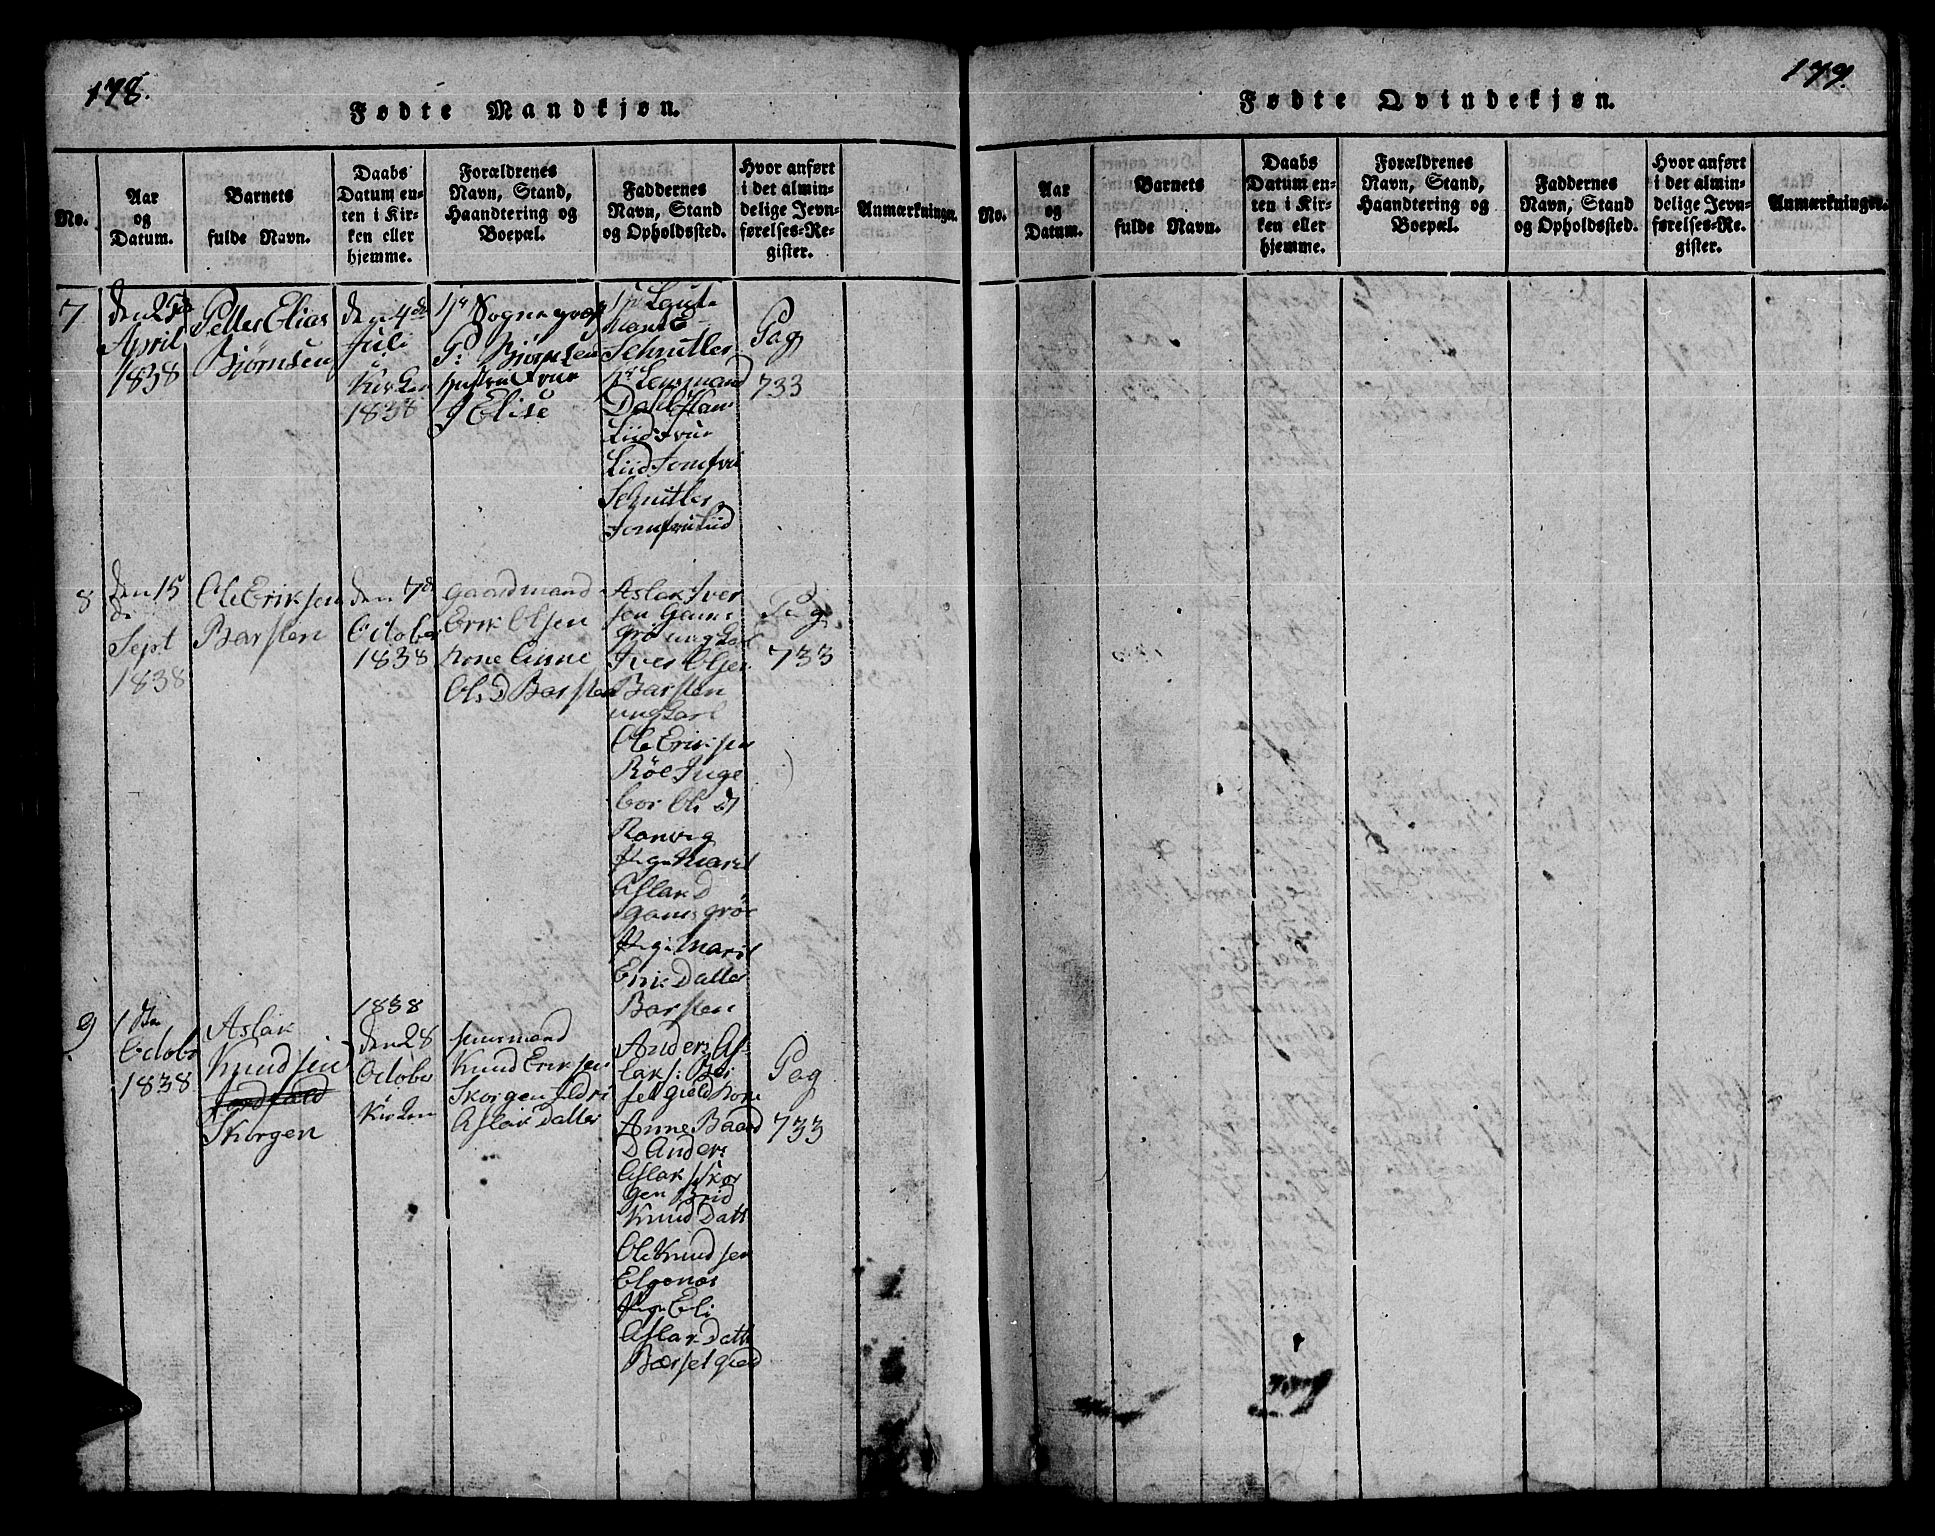 178.
Fødte Mandkjøn.
No.
Aar
og
Datum.
Barnets
fulde Navn.
Daabs
Datum en-
ten i Kir-
ken eller
hjemme.
Forældrenes
Navn, Stand,
Haandtering og
Boepæl.
Faddernes
Navn, Stand
og Opholdssted.
Hvor anført
i det almin-
delige Jevn-
førelses-Re-
gister.
Anmærkninger.
7
den 25de
April
1838
Petter Elias
Bjørnsen
den 4de
Juli
Kirken
1838
Hr Sogneprest
P: Bjørnsen
Hustru Frue
J Elise
Hr Leut-
nant
Schnitler
Hr Lensmand
Dahl Hans
Liid Frue
Liid Jomfru
Schnitler
Jomfru Liid
Pag
733
8
den 15
de
Sept
1838
Ole Eriksen
Barsten
den 7de
October
1838
Gaardmand
Erik Olsen
Kone Anne
Ols D Barsten
Aslak Iver
sen Gams
grö ungkarl
Iver Olsen
Barsten
ungkarl
Ole Eriksen
Röe Inge
bor Ols D
Ranvig
Pige Marit
Aslak D
gamsgröe
Pige Marit
Erik Datter
Barsten
Pag
733
9
1ste
October
1838
Aslak
Knudsen
Skorgen
1838
den 28
October
Kirken
Huusmand
Knud Eriksen
Skorgen Ildri
Aslak Datter
Anders As
lak s: Bær
selgield Kone
Anne Baard
D Anders
Aslak s Skor
gen Brid
Knud Datt
Ole Knudsen
Elgenæs
Pige Eli
Aslak Datt
Bærselgield
Pag
733
179.
Fødte Qvindekjøn.
No.
Aar
og
Datum.
Barnets
fulde Navn.
Daabs
Datum en-
ten i Kir-
ken eller
hjemme.
Forældrenes
Navn, Stand,
Haandtering og
Boepæl.
Faddernes
Navn, Stand
og Opholdssted.
Hvor anført
i det almin-
delige Jevn-
førelses-Re-
gister.
Anmærkninger.